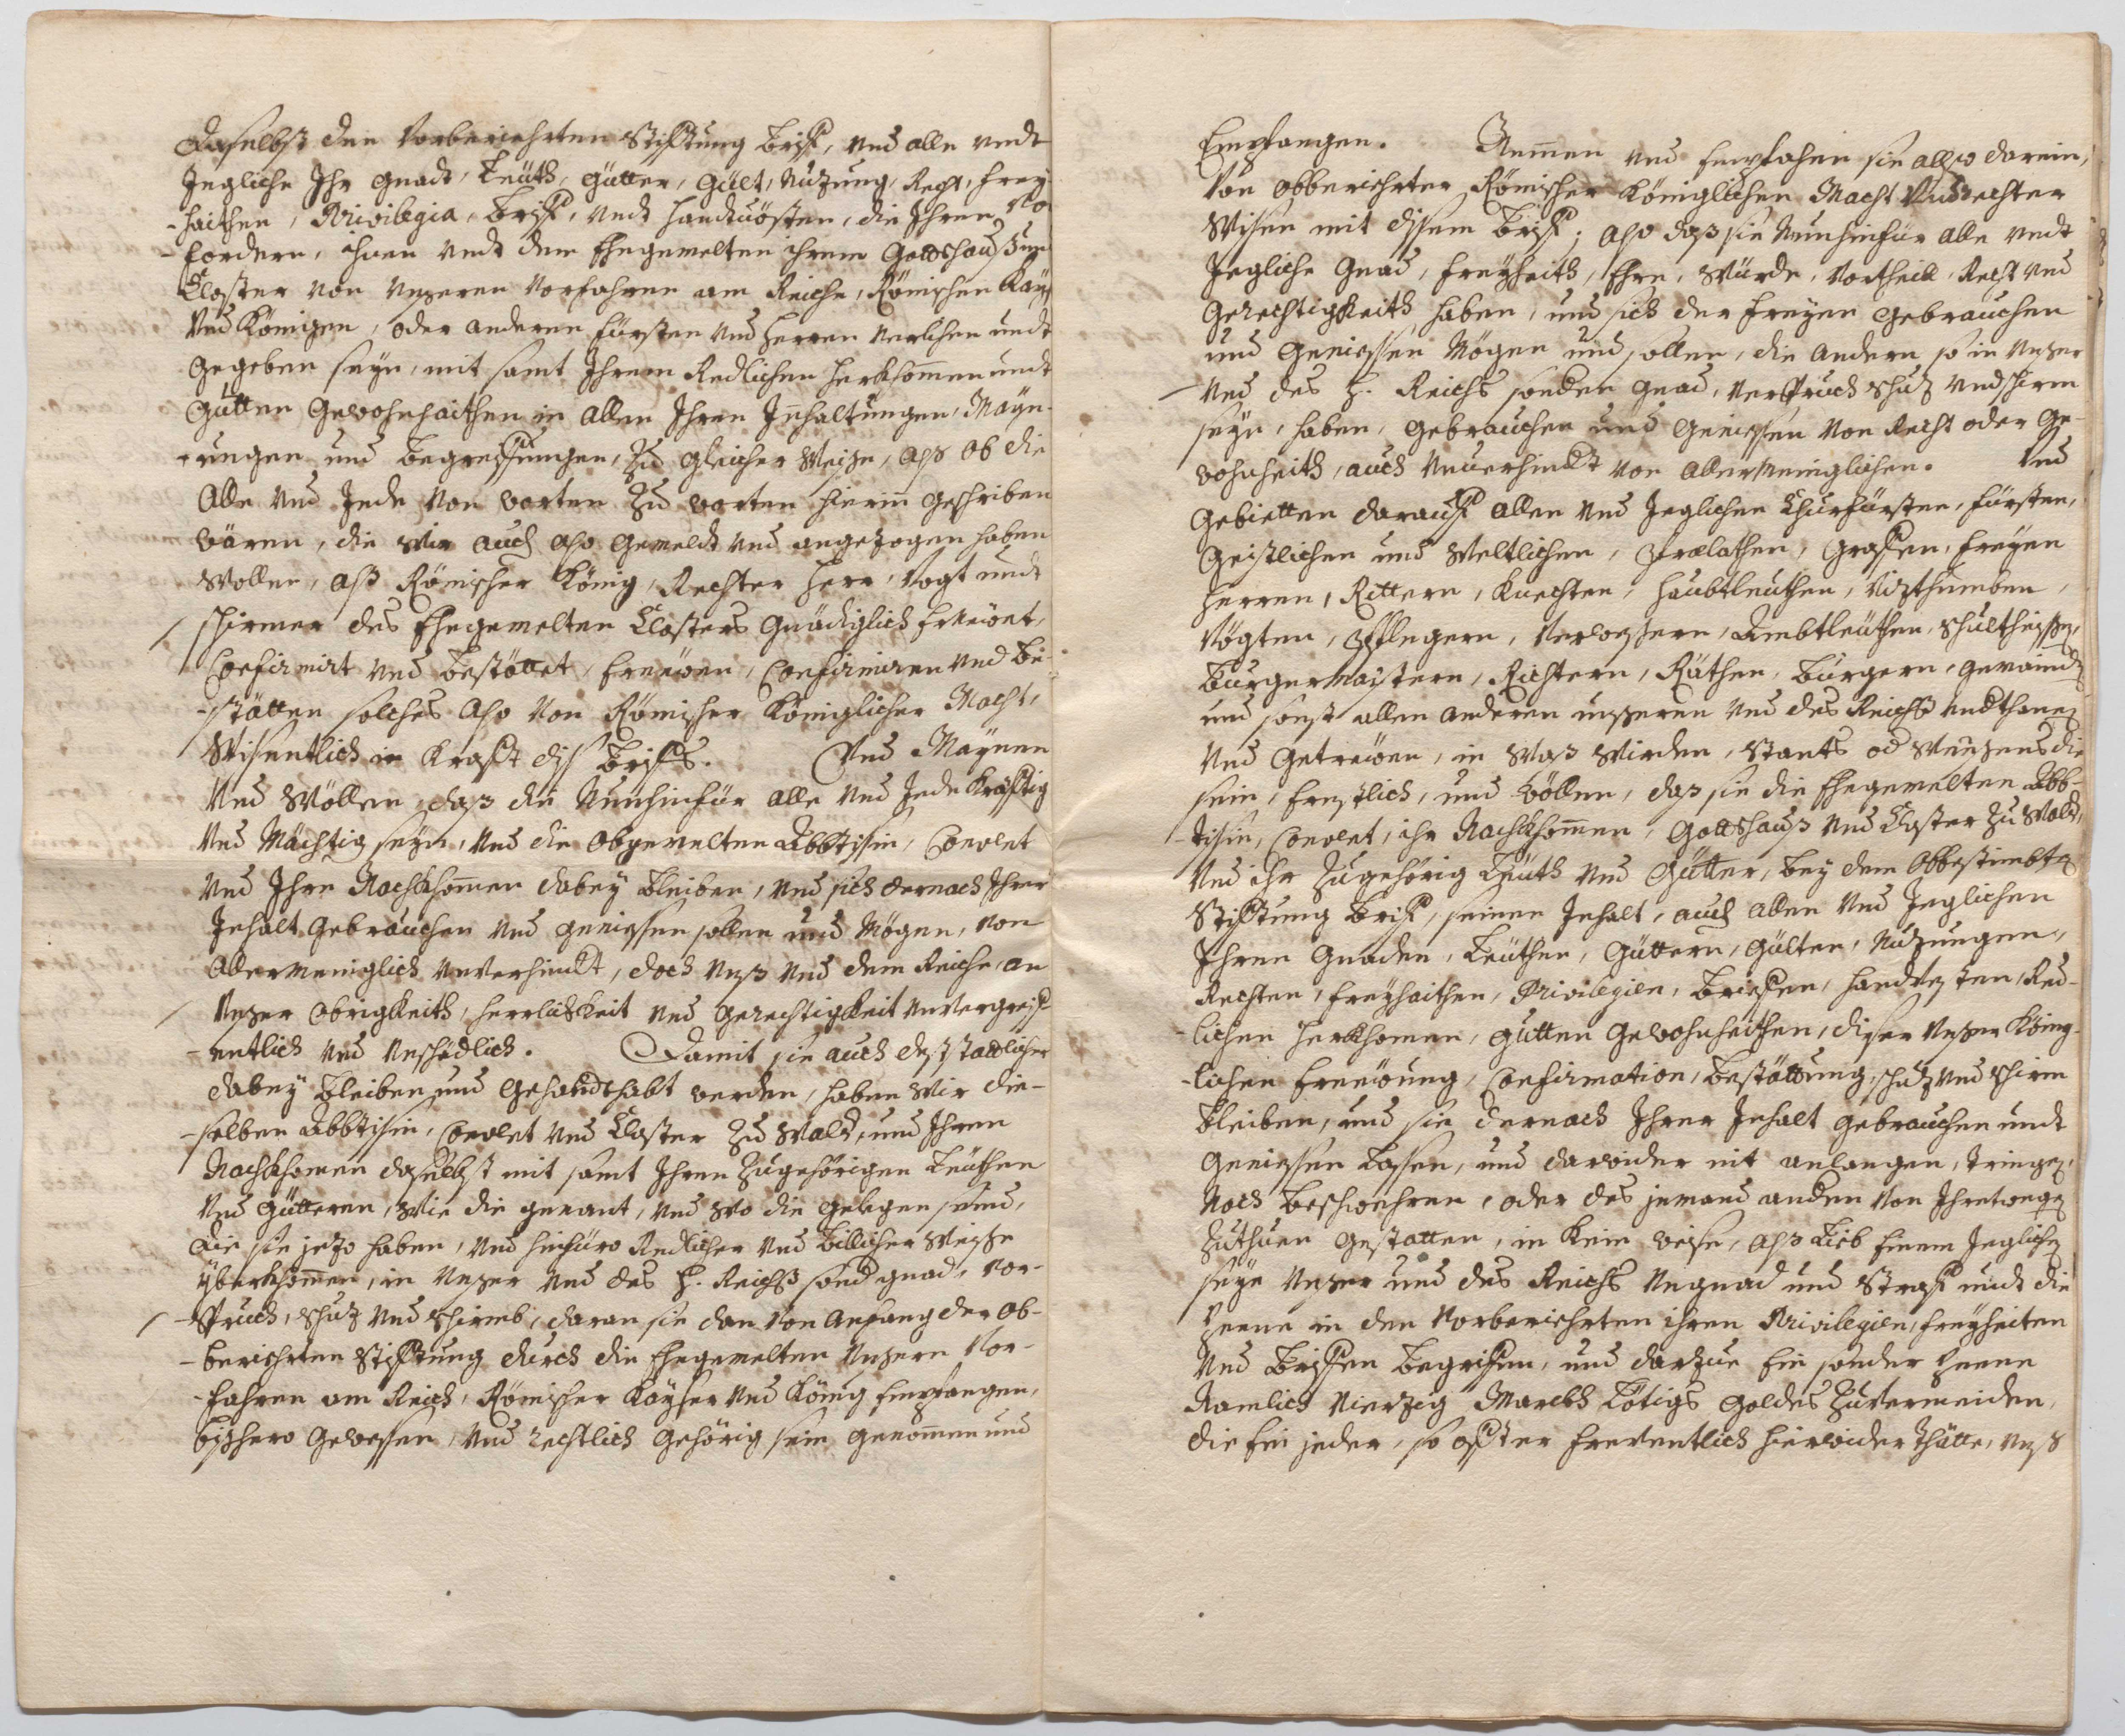 Daselbst den Vorberiehrten Stifftung Brieff, und alle undt
Jegliche Ihr Gnadt, Leüth, Gütter, Gült, Nuzung, Recht, frey-
-haithen, Privilegia, Brieff, undt handtvösten, die Ihren Vo
-fordern, ihnen undt dem Ehegemelten ihrem Gottshauß und
Closter von Unseren Vorfahren am Reiche, Römischen Kays
Und Königen, oder anderen Fürsten und Herren verlihen undt
Gegeben seyn, mit samt Ihrem Redlichen herkhommen undt
Gutten Gewohnhaithen in allen Ihren Innhaltungen, Mayn-
-ungen und Begreiffungen, Zu gleicher Weise, alß ob die
Alle und Jede von worten Zu worten hierinn geschriben
wären, die Wir auch also gemeldt und angezogen haben
Wollen, alß Römischer König, Rechter Herr, Vogt undt
schirmer des Ehegemelten Closters Gnädiglich Erneüet,
Confirmirt und Bestöttet, Erneüen, Confirmiren und Be-
-stätten solches also von Römischer Königlicher Macht,
Wisentlich in Krafft diß Brieffs. Und Maynen
Und Wöllen, daß die Nunhinfür alle und Jede Kräfftig
Und Mächtig seyn, und die obgemelten Abbtissin, Convent
Und Ihre Nachkhommen dabey Bleiben, und sich dernach Ihrer
Inhalt Gebrauchen und geniessen sollen und Mögen, von
Allermeniglich unverhindt, doch Unß und dem Reiche, an
Unser Obrigkeith, Herrlichkeit und Gerechtigkeit unvergreiff-
-entlich und unschädlich. Damit sie auch dest stattlicher
dabey Bleiben und Gehandthabt werden, haben Wir die-
-selben Abbtissin, Convent und Closter Zu Wald, und Ihren
Nachkhomen daselbst mit samt Ihren Zugehörigen Leüthen
Und Gütteren, Wie die genant, und Wo die gelegen seind,
die sie jezo haben, und hinfüro Redlicher und Billicher Weise
yberkhommen, in Unser und des H. Reichß sond gnad, Vor-
-spruch, schuz und schirmb, daran sie dan von Anfang der ob-
-beriehrten Stifftung durch die Ehegemelten Unsern Vor-
-fahren am Reich, Römischer Kayser und König Empfangen,
bißhero Gewessen, und rechtlich gehörig sein genommen und
Empfangen. Nemmen und Empfahen sie allso darein,
Von obberiehrter Römischer Königlichen Macht Und rechter
Wisen mit disem Brieff; also daß sie Nunhinfür alle undt
Jegliche Gnad, Freyheith, Ehre, Würde, Vortheil, Recht und
Gerechtigkeith haben, und sich der freyen gebrauchen
und Geniessen Mögen und sollen, die Andern so in Unser
Und des H. Reichs sonder gnad, Verspruch schuz und schirm
seyn, haben, gebrauchen und Geniessen von Recht oder Ge-
wohnheith, auch Unverhindt von allermeniglichen. Und
Gebietten darauff allen und Jeglichen Churfürsten, Fürsten,
Geistlichen und Weltlichen, Prælathen, Graffen, Freyen
Herren, Rittern, Knechten, Haubtleuthen, Vizthumben,
Vögten, Pflegern, Verwesern, Ambtleüthen, schultheissen,
Burgermaistern, Richtern, Räthen, Burgern, gemeindt
und sonst allen anderen unseren und des Reichs undthanen
Und Getreüen, in Waß Wirden, Standts od Wesens die
sein, Ernstlich, und wöllen, daß sie die Ehegemelten Abb-
-tissin, Convent, ihr Nachkhommen, Gottshauß und Closter Zu Wald,
Und ihr Zugehörig Leüth und Gütter, bey dem Obbestimbten
Stifftung Brieff, seinen Inhalt, auch allen und Jeglichen
Ihren Gnaden, Leüthen, Güttern, Gülten, Nuzungen,
Rechten, Freyhaithen, Privilegien, Brieffen, Handvesten, Red-
-lichen Herkhomen, gutten Gewohnheithen, diser Unser König-
-lichen Erneüung, Confirmation, Bestättung, schuz und schirm
Bleiben, und sie dernach Ihrer Inhalt gebrauchen undt
Geniessen Lassen, und darwider nit anlangen, tringen,
Noch Beschwehren, oder des jemand anden von Ihretwegen
Zuthuen gestatten, in Kein weise, alß Lieb Einem Jeglichen
seye Unser und des Reichs Ungnad und Straff undt die
Peene in den Vorberiehrten ihren Privilegien, Freyheiten
Und Brieffen Begriffen, und darzue Ein sonder Peene
Namlich Vierzig Marckh Lötigs Goldes Zuvermeiden,
die Ein jeder, so offt er Freventlich hierwider thätte, Unß